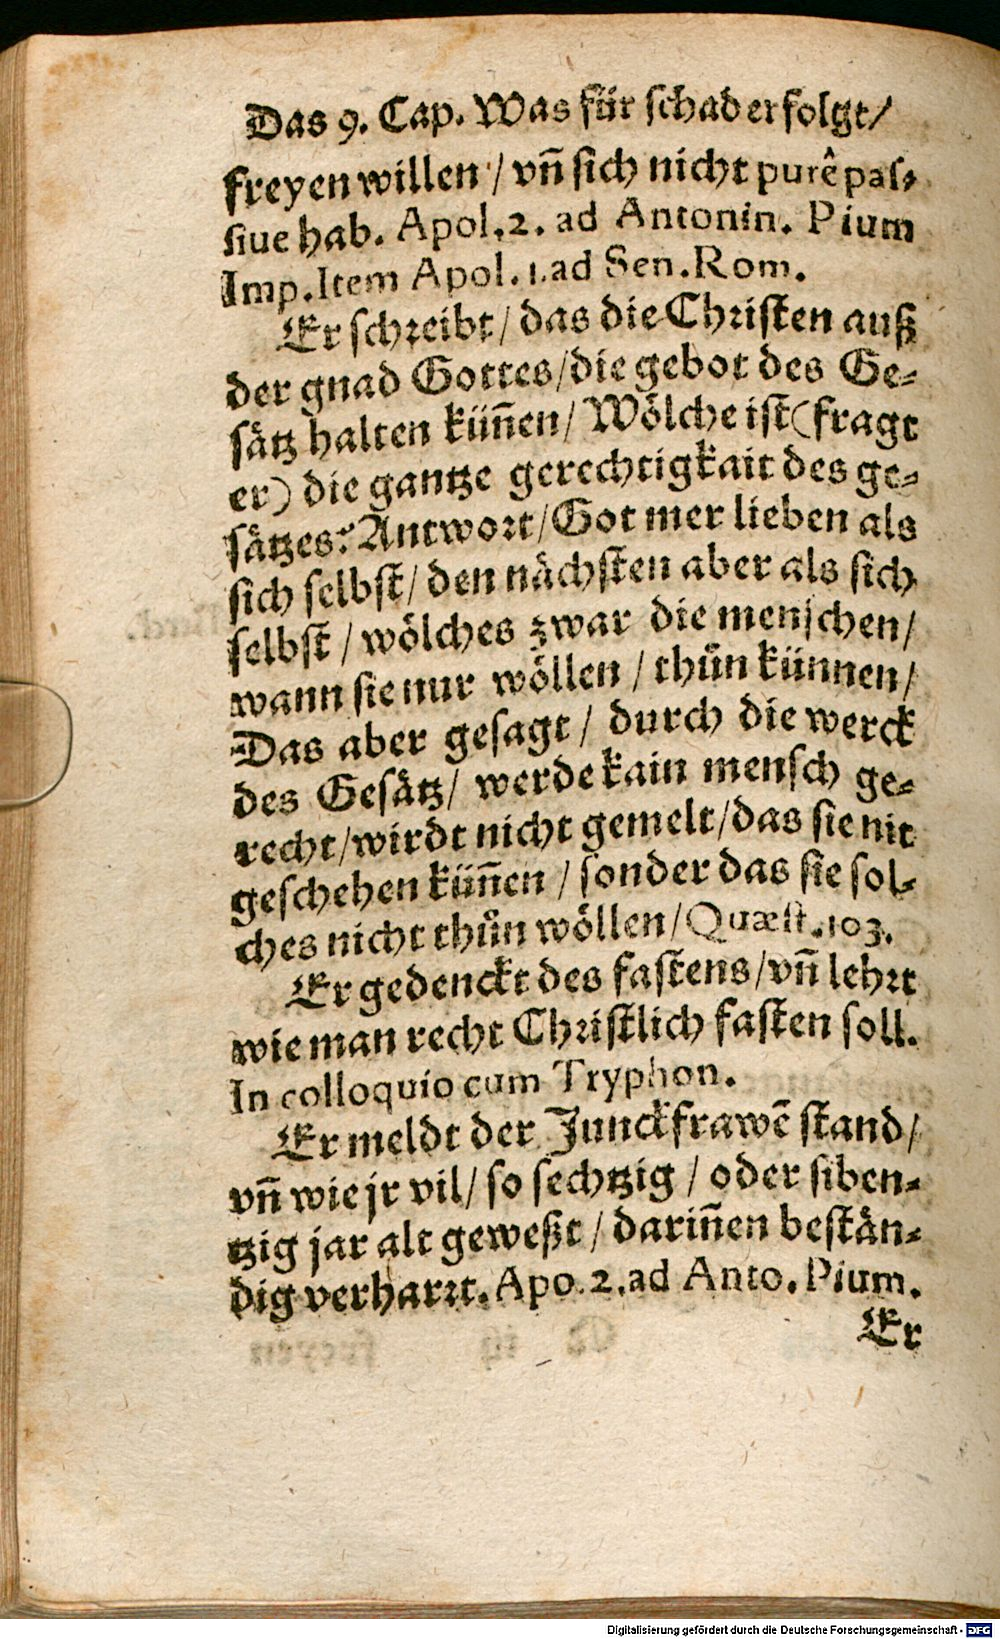 Das 9. Cap. Was für schad erfolgt/
freyen willen / vñ sich nicht purê pas-
siue hab. Apol. 2. ad Antonin. Pium
Imp. Item Apol. 1. ad Sen. Rom.
Er schreibt / das die Christen auß
der gnad Gottes / die gebot des Ge-
sätz halten küñen / Wölche ist (fragt
er) die gantze gerechtigkait des ge-
sätzes? Antwort / Got mer lieben als
sich selbst / den nächsten aber als sich
selbst / wölches zwar die menschen /
wann sie nur wöllen / thůn künnen /
Das aber gesagt / durch die werck
des Gesätz / werde kain mensch ge-
recht / wirdt nicht gemelt / das sie nit
geschehen küñen / sonder das sie sol-
ches nicht thůn wöllen / Quæst. 103.
Er gedenckt des fastens / vñ lehrt
wie man recht Christlich fasten soll.
In colloquio cum Tryphon.
Er meldt der Junckfrawē stand /
vñ wie jr vil / so sechtzig / oder siben-
tzig jar alt geweßt / dariñen bestän-
dig verharrt. Apo. 2. ad Anto. Pium.
Er
Digitalisierung gefördert durch die Deutsche Forschungsgemeinschaft - DFG